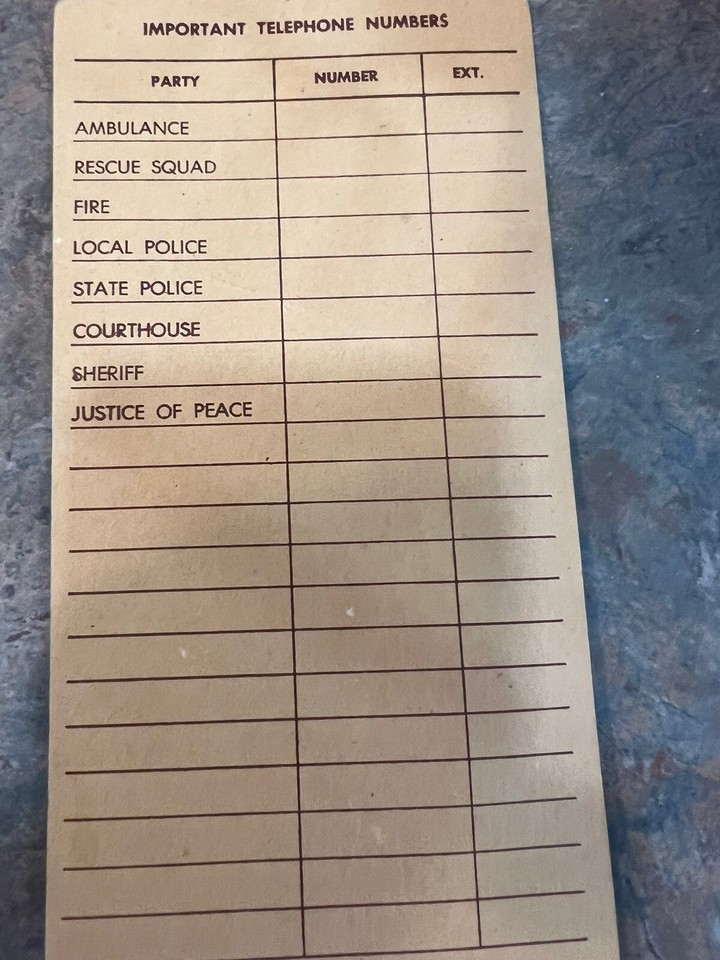 IMPORTANT TELEPHONE NUMBERS
PARTY NUMBER EXT.
AMBULANCE
RESCUE SQUAD
FIRE
LOCAL POLICE
STATE POLICE
COURTHOUSE
SHERIFF
JUSTICE OF PEACE